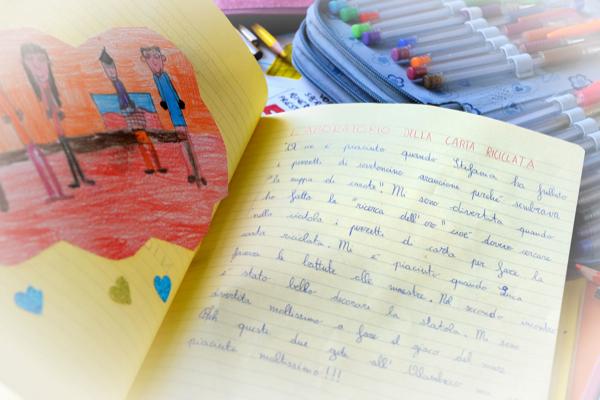 LABORATORIO DELLA CARTA RICICLATA
"Mi è piaciuto quando Stefania ha frullato
i pezzetti di cartoncino arancione perché sembrava
"la zuppa di carote". Mi sono divertita quando
ho fatto la "ricerca dell'oro" cioè dovevo cercare
nella ciotola i pezzetti di carta per fare la
carta riciclata. Mi è piaciuto quando Luca
faceva le battute alle maestre. Nel secondo incontro
è stato bello decorare la scatola. Mi sono
divertita moltissimo a fare il gioco del mare
queste due gite all'
piaciute moltissimo!!!